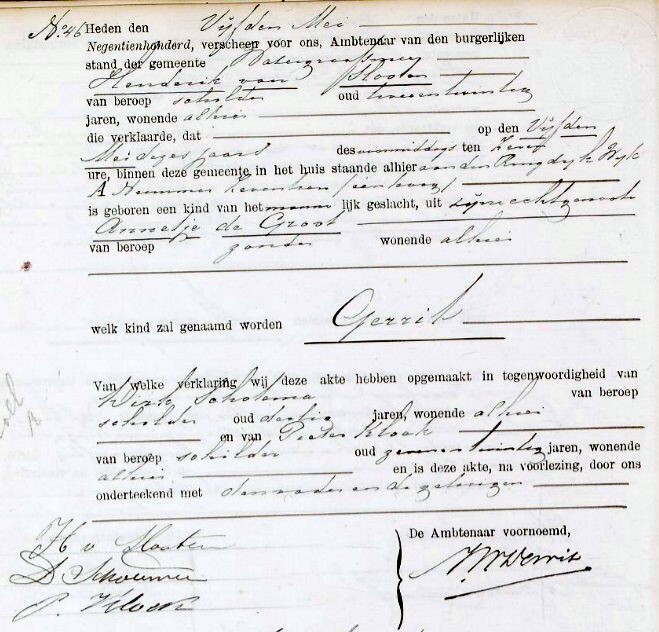 No 46 Heden den Vijfden Mei
Negentienhonderd, verscheen voor ons, Ambtenaar van den burgerlijken
stand der gemeente Watergraafsmeer
Hendrik van Slooten
van beroep schilder oud tweeentwintig
jaren, wonende alhier
die verklaarde, dat op den Vijfden
Mei dezes jaars des voormiddags ten zeven
ure, binnen deze gemeente in het huis staande alhier aan den Ringdijk Wijk
A Nummer
is geboren een kind van het mannelijk geslacht, uit zijne echtgenoote
Annetje de Groot
van beroep zonder wonende alhier
welk kind zal genaamd worden Gerrit
Van welke verklaring wij deze akte hebben opgemaakt in tegenwoordigheid van
Dirk van beroep
schilder oud dertig jaren, wonende alhier
en van Pieter
van beroep schilder oud jaren, wonende
alhier en is deze akte, na voorlezing, door ons
onderteekend met den vader en de getuigen
De Ambtenaar voornoemd,
H v Slooten
D
P.